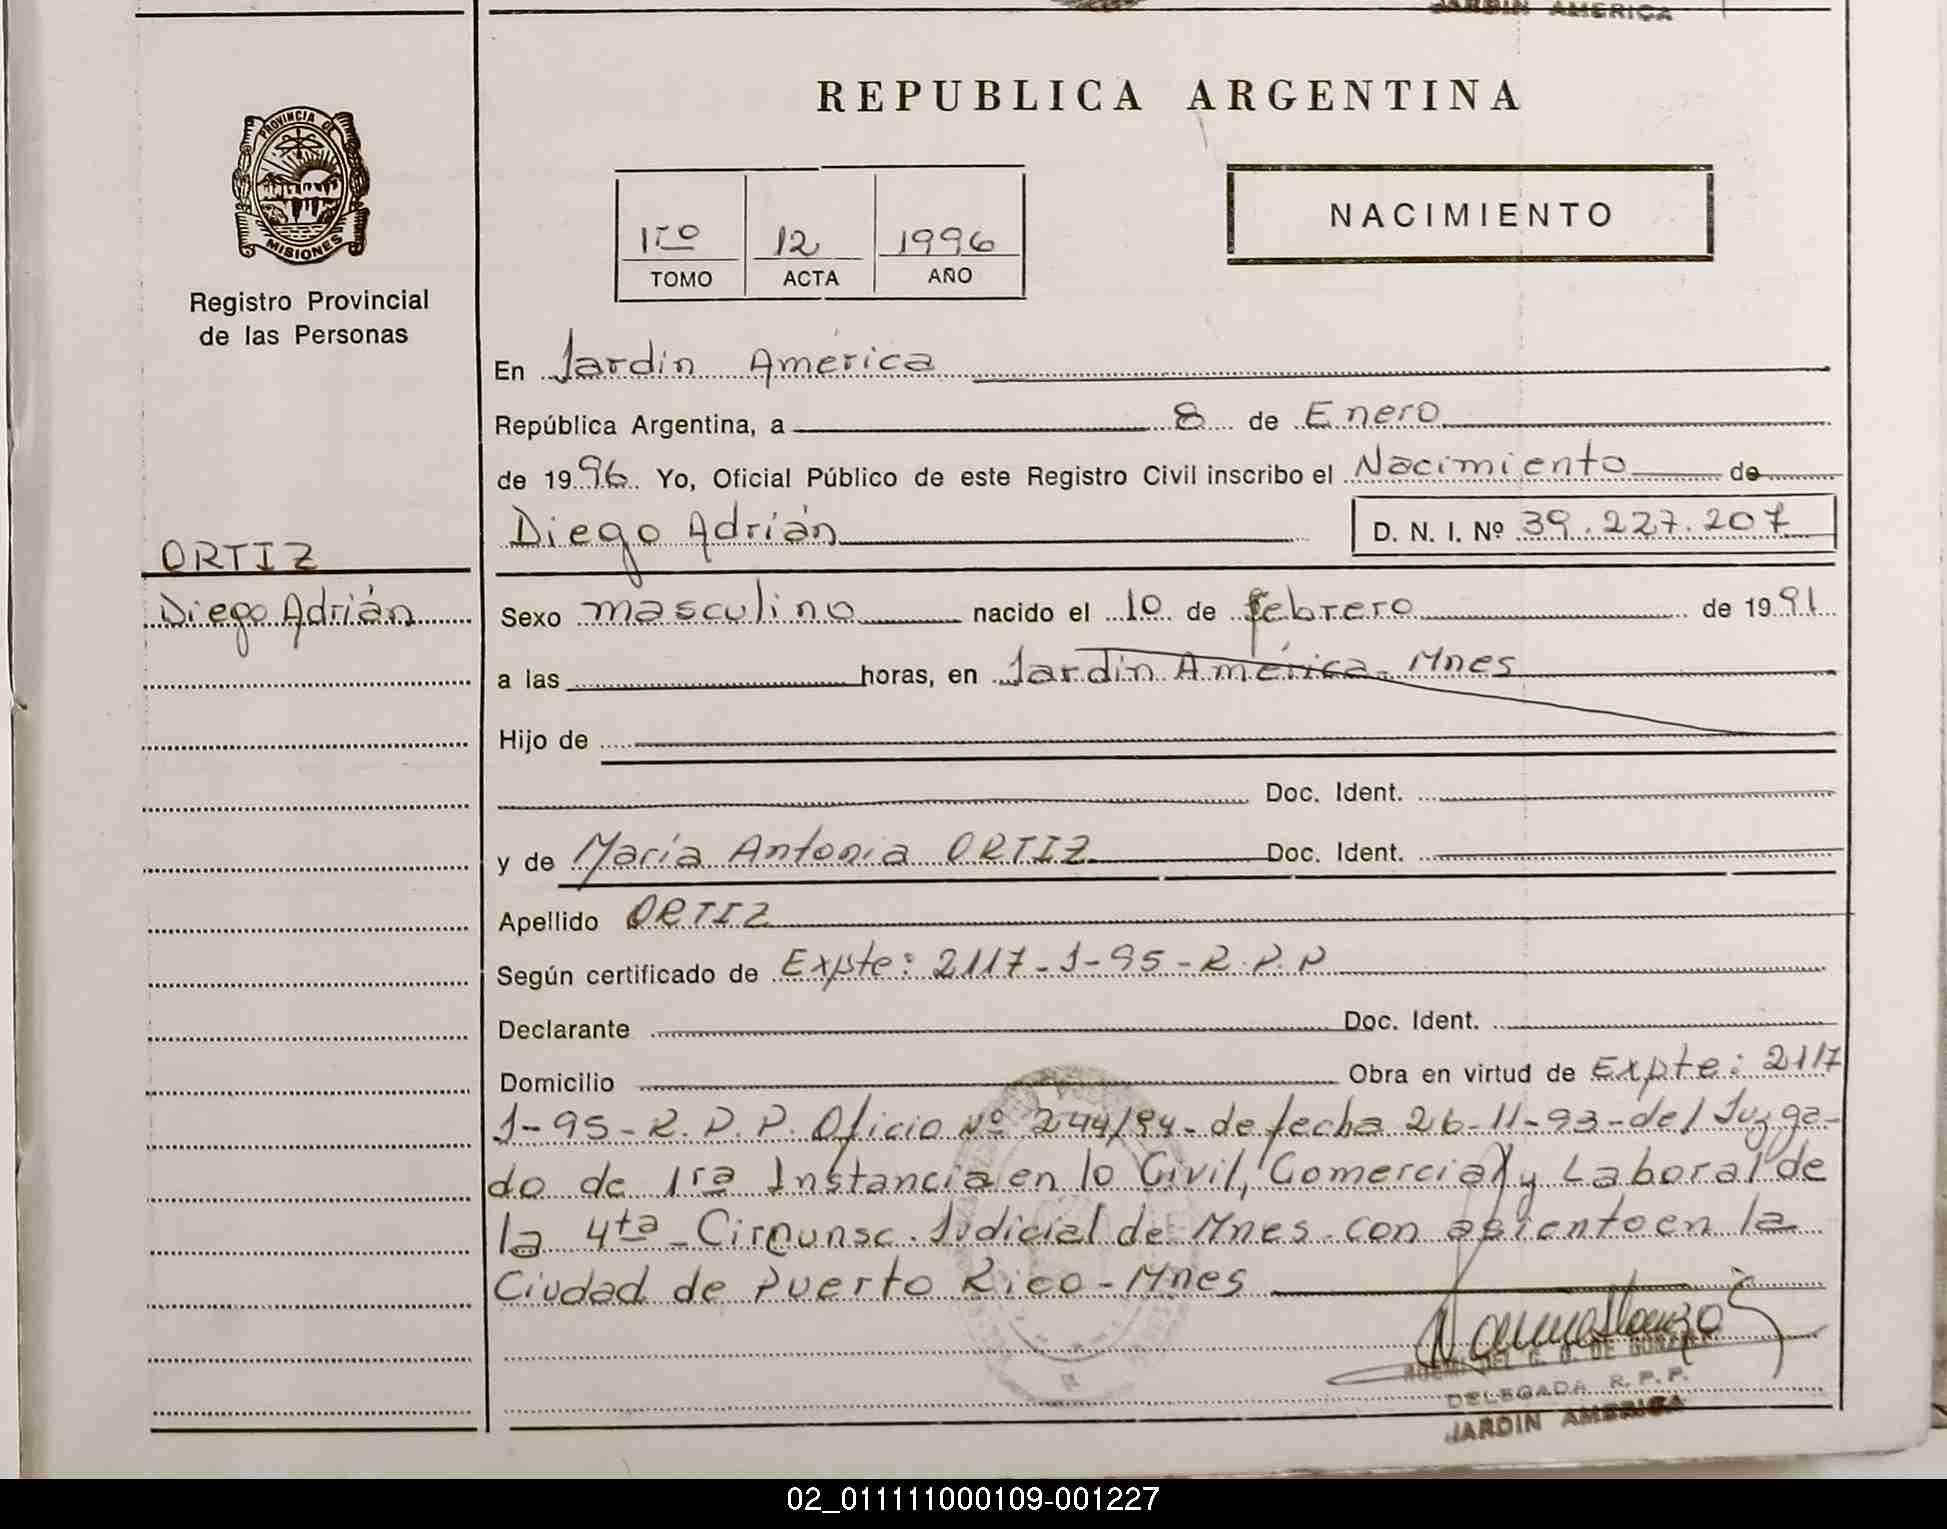 JARDIN AMERICA
PROVINCIA DE
MISIONES
Registro Provincial
de las Personas
REPUBLICA ARGENTINA
NACIMIENTO
1ro 12 1996
TOMO ACTA AÑO
En Jardín América
República Argentina, a 8 de Enero
de 1996 Yo, Oficial Público de este Registro Civil inscribo el Nacimiento de
Diego Adrián D. N. I. Nº 39.227.207
ORTIZ
Diego Adrián
Sexo masculino nacido el 10 de febrero de 1991
a las horas, en Jardín América - Mnes
Hijo de
Doc. Ident.
y de María Antonia ORTIZ Doc. Ident.
Apellido ORTIZ
Según certificado de Expte: 2117-J-95-R.P.P
Declarante Doc. Ident.
Domicilio Obra en virtud de Expte: 2117
J-95-R.P.P. Oficio Nº 244/94 - de fecha 26-11-93 - del Juzga-
do de 1ra Instancia en lo Civil, Comercial y Laboral de
la 4ta - Circunsc. Judicial de Mnes. con asiento en la
Ciudad de Puerto Rico - Mnes
DE
DELEGADA R.P.P.
JARDIN AMERICA
02_011111000109-001227